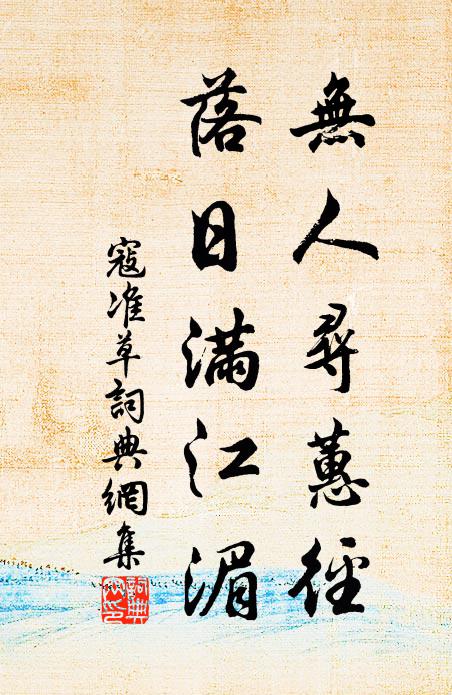 無人尋蕙徑
落日滿江湄
寇准草詞典網集
詞典